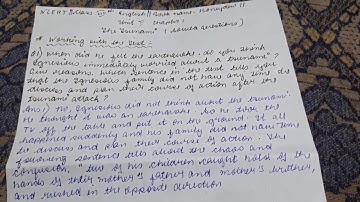 NCERT Class VIII th English Book name - Honeydew
Unit - Chapter
"The Tsunami" (Solved questions)
* Working with the text :-
Q1) When did he felt the earthquake. do you think
Ignesious immediately worried about a tsunami?
Give reasons. Which sentence in the text tells you
that the Ignesious family did not have any time to
discuss and plan their course of action after the
tsunami attack?
Ans:) No Ignesious did not think about the tsunami.
He thought it was an earthquake. So he took the
TV off the table and put it on the ground. It all
happened suddenly and his family did not have time
to discuss and plan their course of action. The
following sentence tells about the chaos and
confusion, "two of his children caught hold of the
hands of their mother's father and mother's brother,
and rushed in the opposite direction